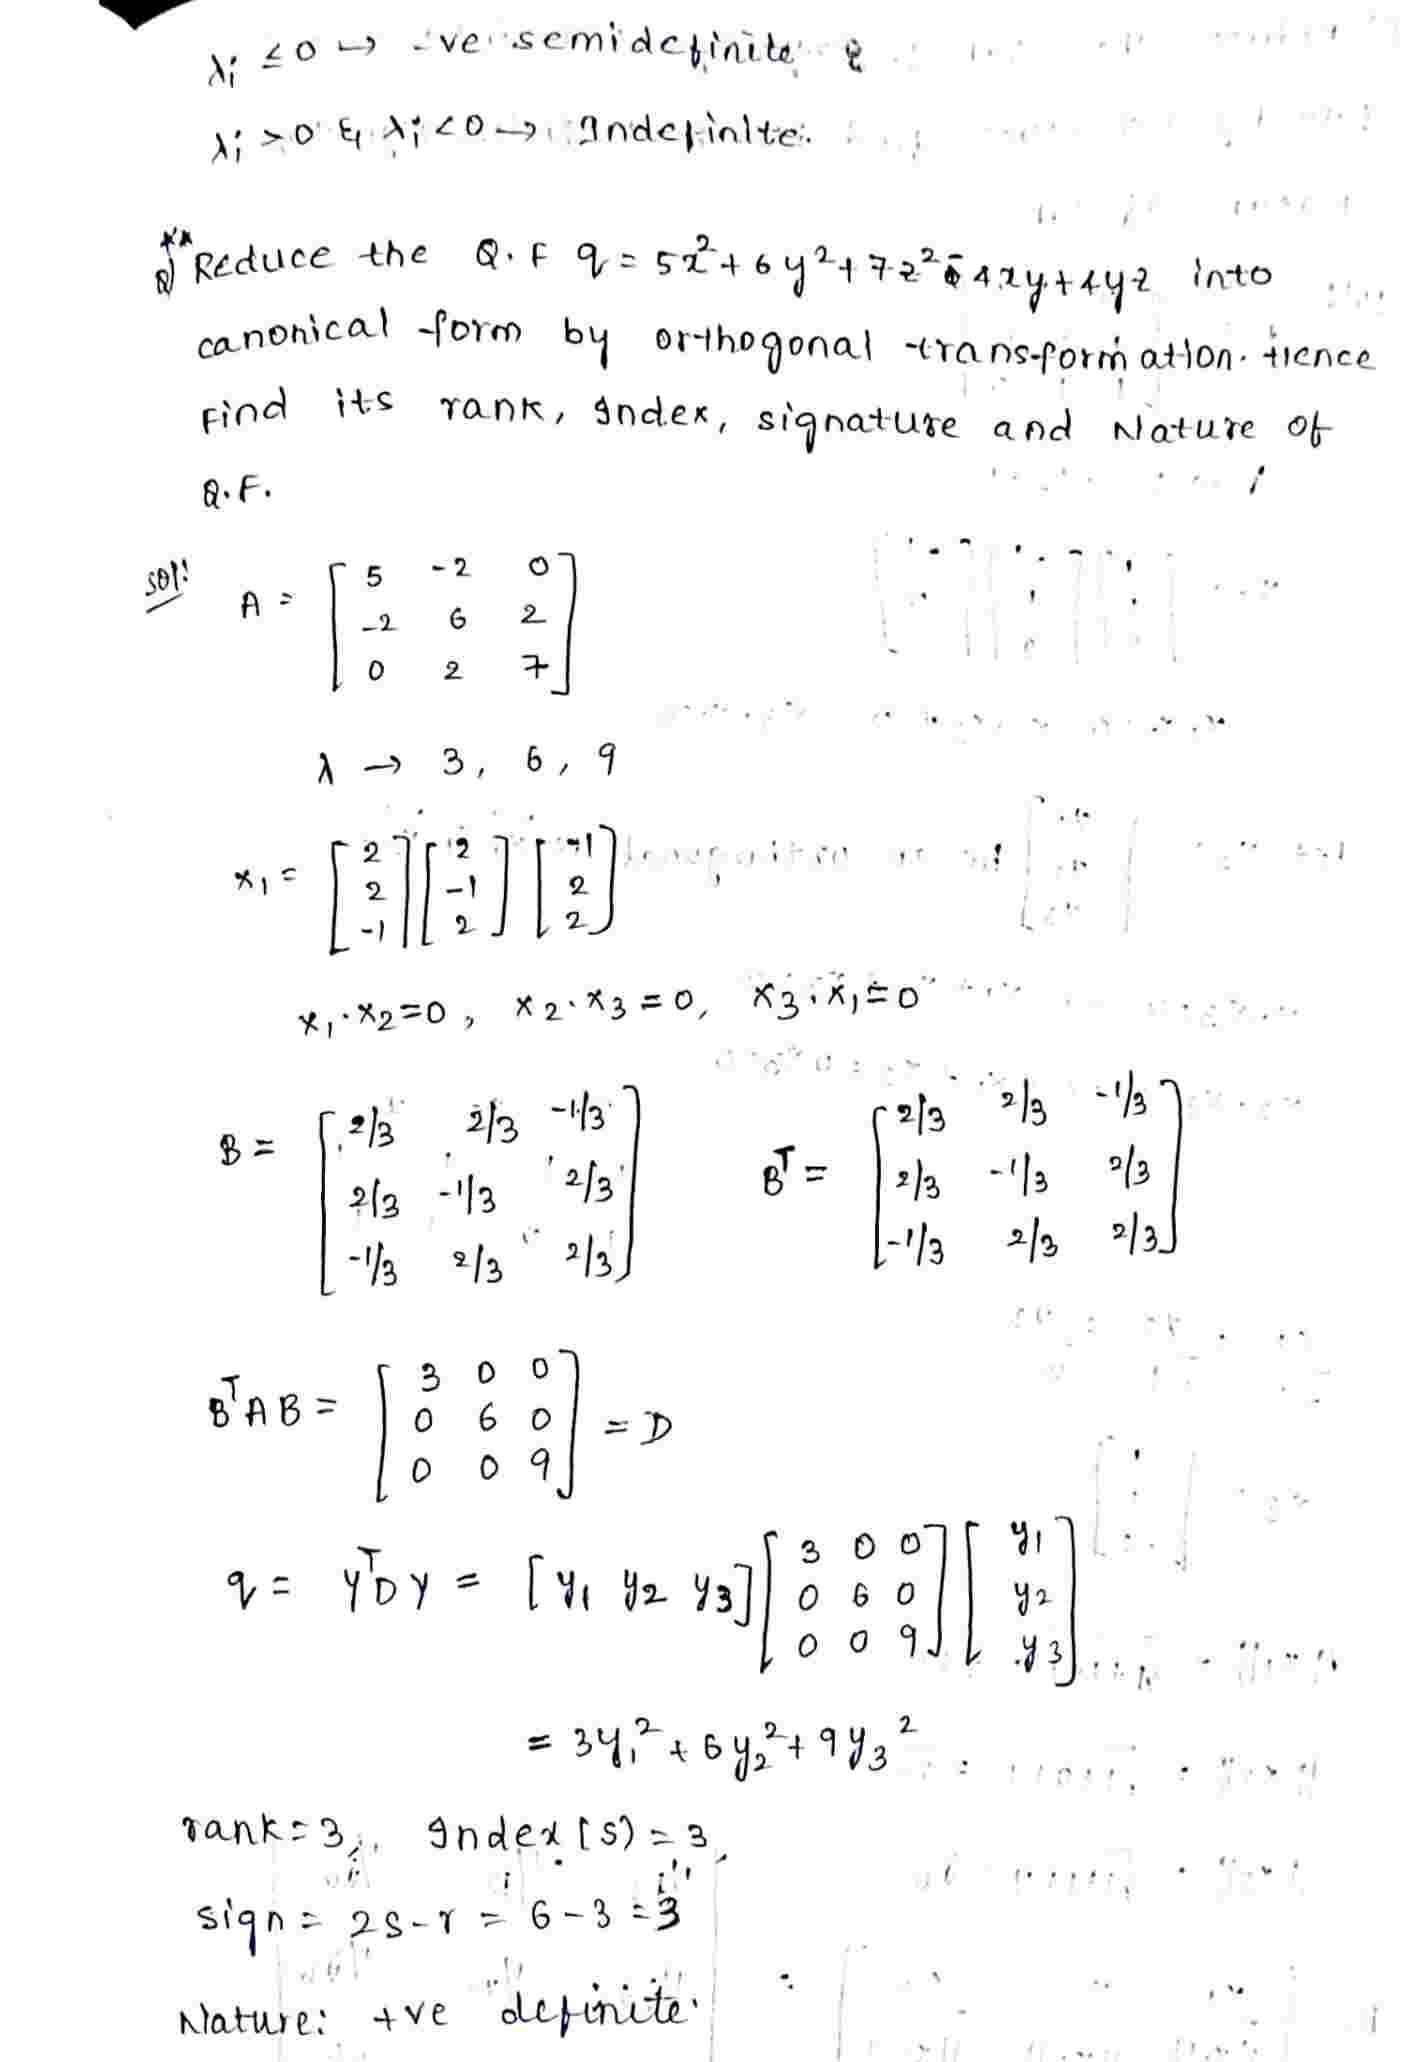 λi ≤0 → -ve semidefinite &
λi >0 & λi <0 → Indefinite.
** Q) Reduce the Q.F q = 5x²+6y²+7z²-4xy+4yz into
canonical form by orthogonal transformation. Hence
Find its rank, Index, signature and Nature of
Q.F.
sol: A = [ 5 -2 0
-2 6 2
0 2 7 ]
λ → 3, 6, 9
x₁ = [ 2 2 -1 ] [ 2 -1 2 ] [ -1 2 2 ]
x₁·x₂=0, x₂·x₃=0, x₃·x₁=0
B = [ 2/3 2/3 -1/3
2/3 -1/3 2/3
-1/3 2/3 2/3 ]
Bᵀ = [ 2/3 2/3 -1/3
2/3 -1/3 2/3
-1/3 2/3 2/3 ]
BᵀAB = [ 3 0 0
0 6 0
0 0 9 ] = D
q = YᵀDY = [y₁ y₂ y₃] [ 3 0 0
0 6 0
0 0 9 ] [ y₁
y₂
y₃ ]
= 3y₁²+6y₂²+9y₃²
rank=3, Index(s)=3
sign = 2s-r = 6-3 =3
Nature: +ve definite.